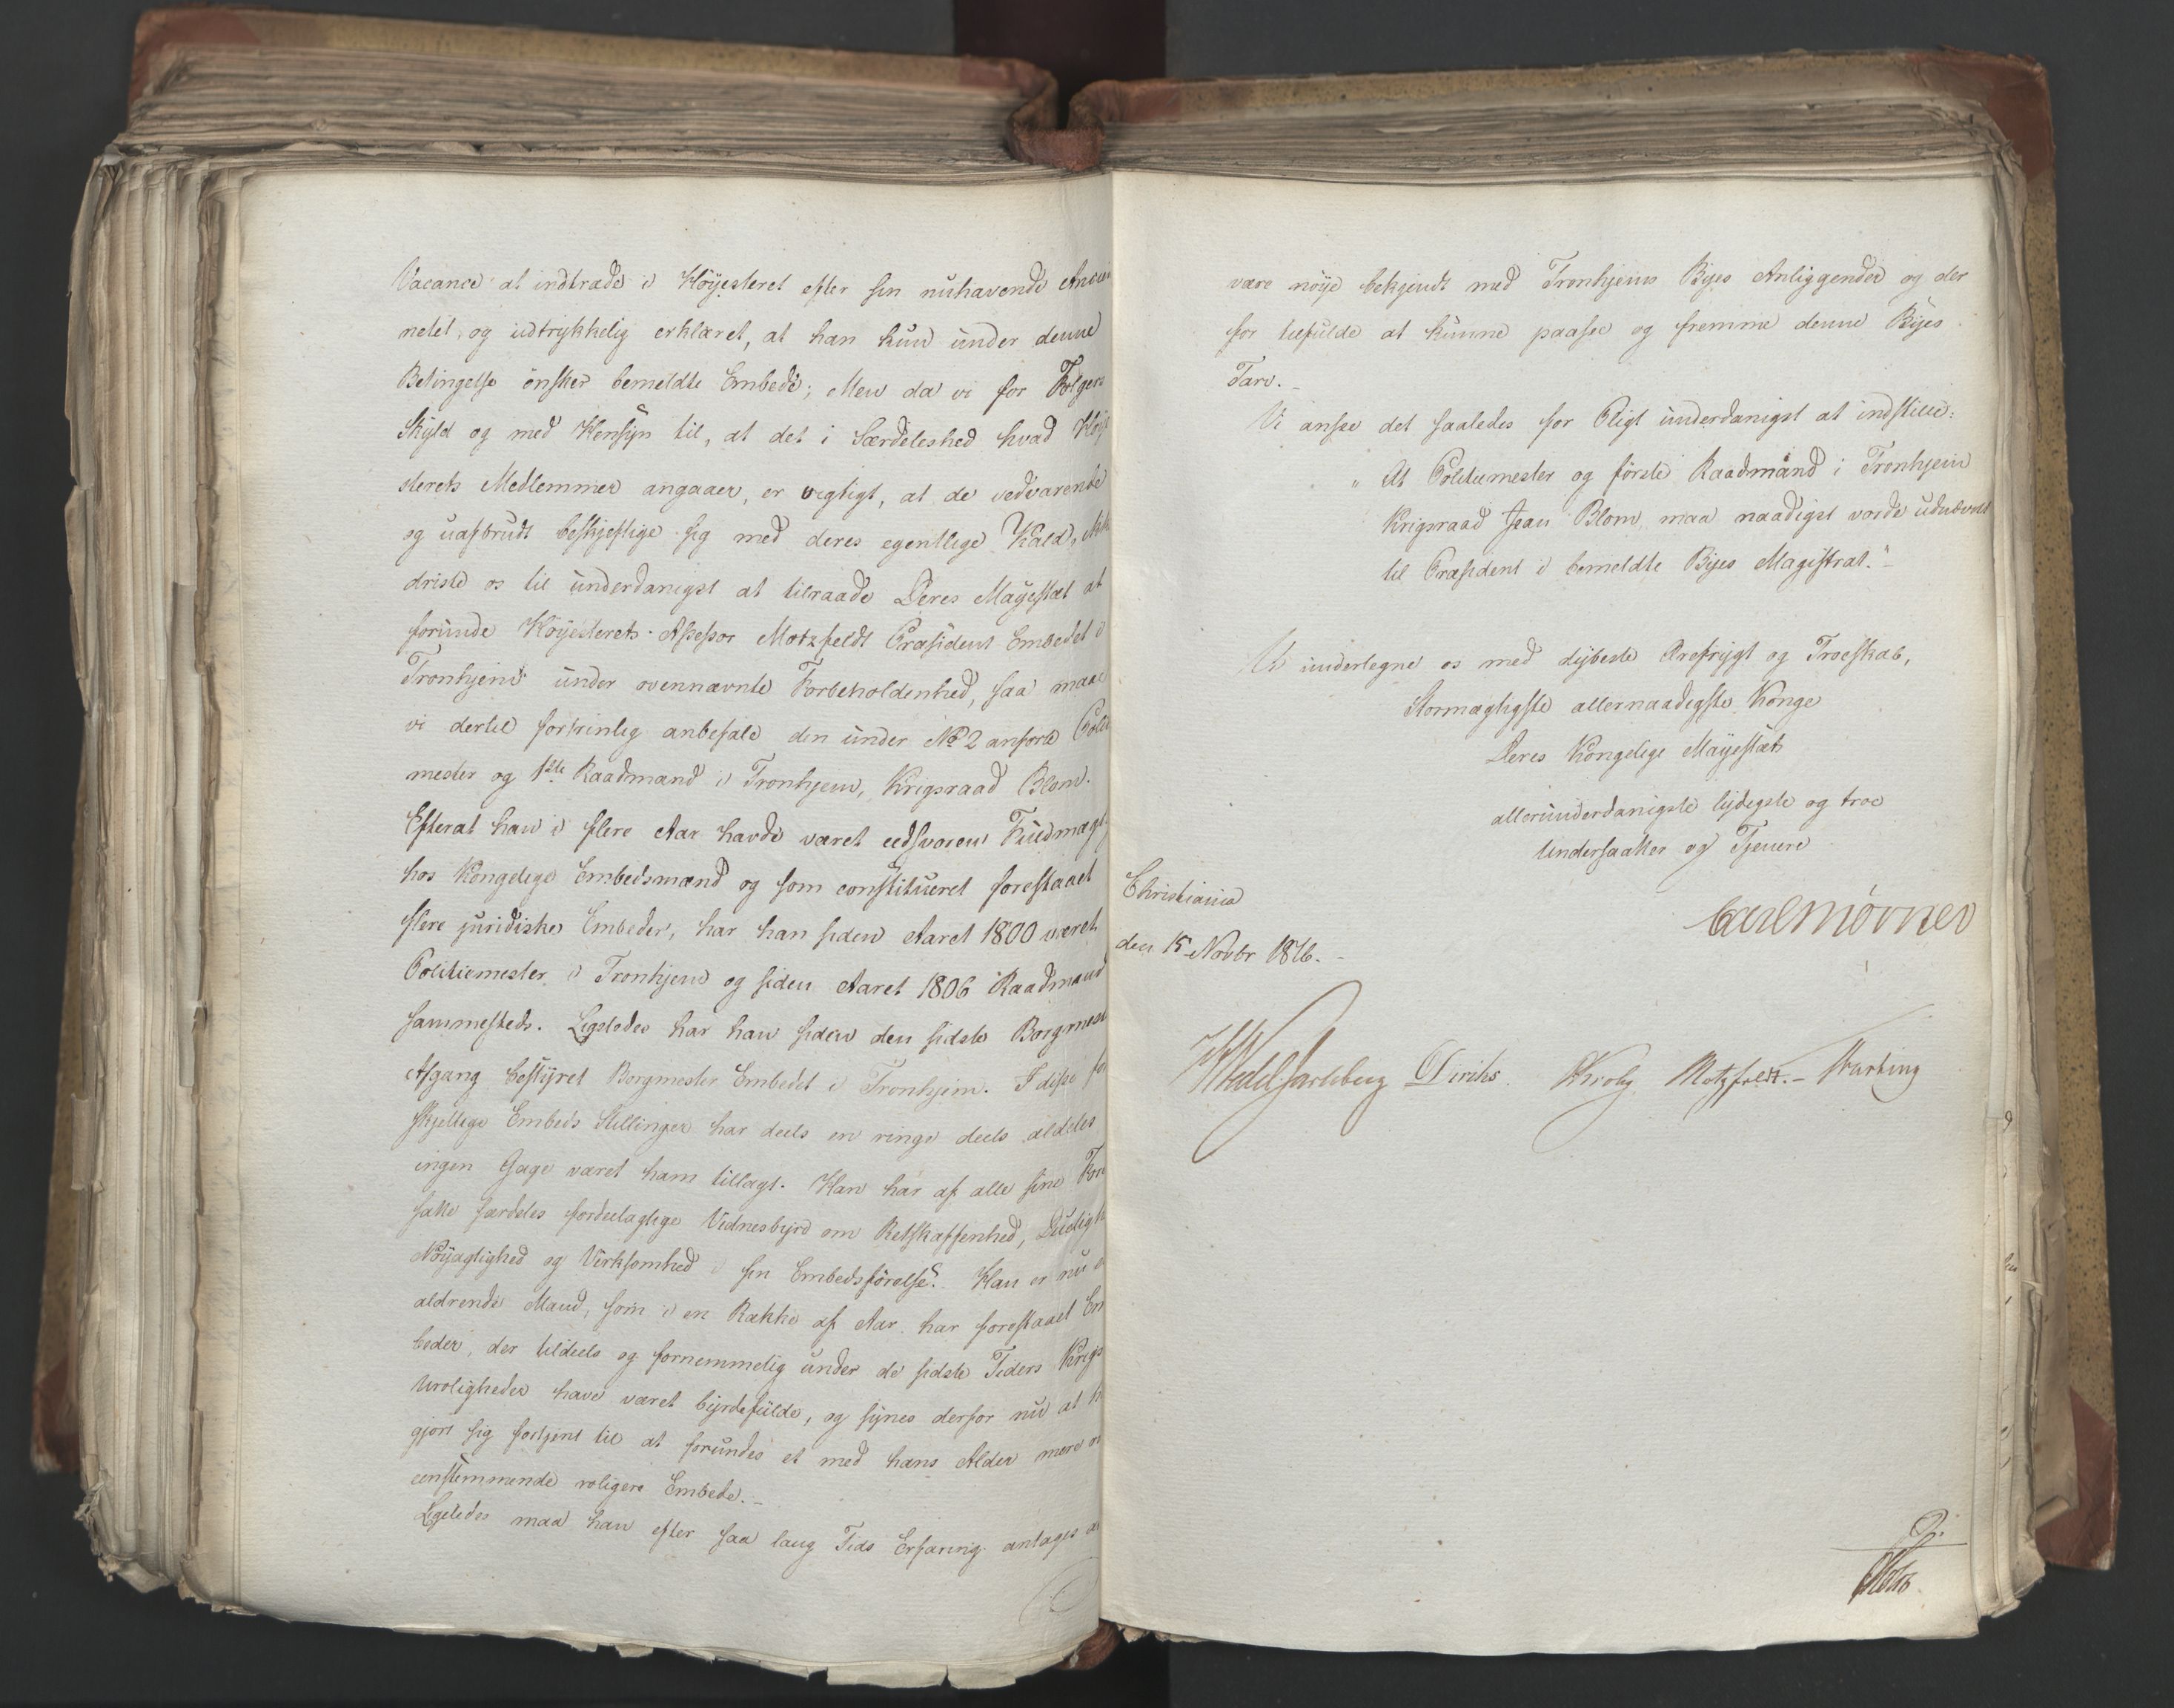 Vacance at indtræde i Høÿesteret efter sin nuhavende Ancien
netet, og udtrykkelig erklæret, at han kun under denne
Betingelse ønsker bemeldte Embede; Men da vi for Følgers
Skyld og med Hensyn til, at det i Særdeleshed hvad Høÿe
sterets Medlemmer angaaer, er vigtigt, at de vedvarende
og uafbrudt beskjeftige sig med deres egentlige Kald,
driste os til underdanigst at tilraade Deres Mayestæt at
forunde Høyesterets-Assessor Motzfeldt Præsident Embedet i
Tronhjem under ovennævnte Forbeholdenhed, saa maae
vi dertil fortrinlig anbefale den under No 2 anførte Politi
mester og 1ste Raadmand i Tronhjem, Krigsraad Blom.
Efterat han i flere Aar havde været eedsvoren Fuldmægt
hos Kongelige Embedsmænd og som constitueret forestaaet
flere juridiske Embeder, har han siden Aaret 1800 været
Politiemester i Tronhjem og siden Aaret 1806 Raadmand
sammesteds. Ligeledes har han siden den sidste Borgmest
Afgang bestyret Borgmester Embedet i Tronhjem. I disse for
skjellige Embeds Stillinger har deels en ringe deels aldeles
ingen Gage været ham tillagt. Han har af alle sine Fore
satte særdeles fordeelagtige Vidnesbyrd om Retskaffenhed, Duelighe
Nøyagtighed og Virksomhed i sin Embedsførelse. Han er nu e
aldrende Mand, som i en Række af Aar har forestaaet Em
beder, der tildeels og fornemmelig under de sidste Tiders Krigs
Uroligheder have været byrdefulde, og synes derfor nu at h
gjort sig fortjent til at forundes et med hans Alder mere ov
eenstemmende roligere Embede.-
Ligeledes maa han efter saa lang Tids Erfaring antages at
være nøye bekjendt med Tronhjems Byes Anliggender og der
for tilfulde at kunne paasee og fremme denne Byes
Tarv.-
Vi ansee det saaledes for Pligt underdanigst at indstille:
"At Politiemester og første Raadmand i Tronhjem
Krigsraad Jean Blom maa naadigst vorde udnævnt
til Præsident i bemeldte Byes Magistrat."-
Vi undertegne os med dybeste Ærefrygt og Troeskab,
Stormægtigste allernaadigste Konge
Deres Kongelige Mayestæts
allerunderdanigste lydigste og troe
Undersaatter og Tjenere
Christiania
den 15 Novbr 1816.-
Carl Mörner
HWedel Jarlsberg Diriks. Krohg Motzfeldt.-